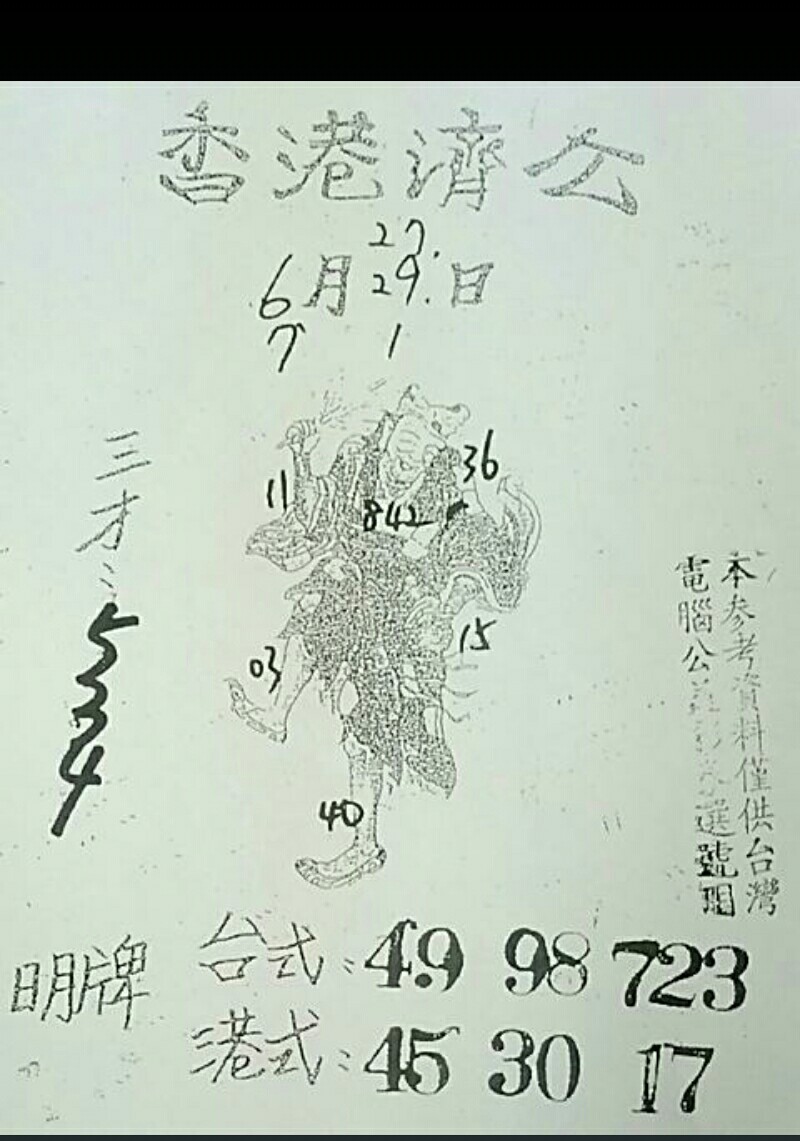 香港濟公
27.
6月29.日
7 1
三才:534
11
36
842
15
03
40
本參考資料僅供台灣
電腦公益彩券選號用
明牌
台式:49 98 723
港式:45 30 17